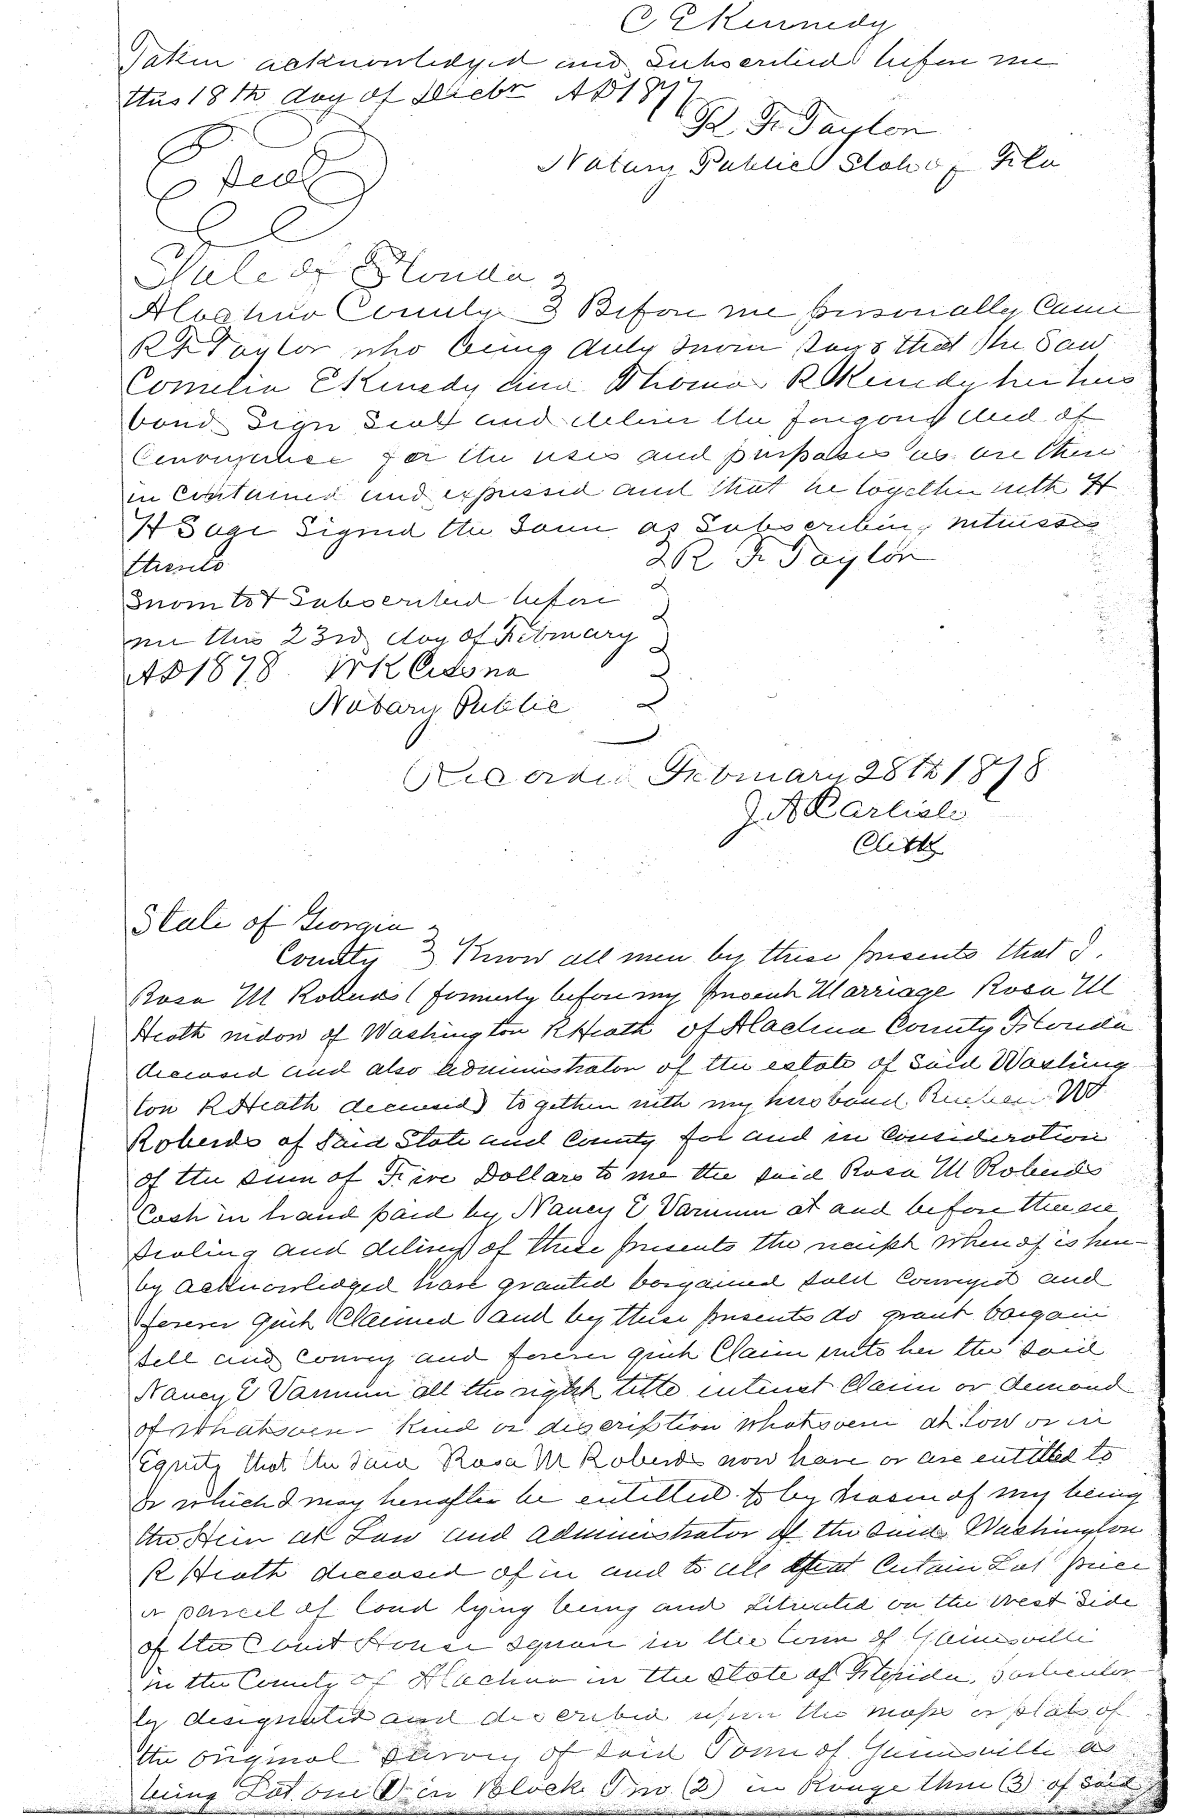 C E Kennedy
Taken acknowledged and Subscribed before me
this 18th day of Decbr AD 1877
R. F. Taylor
Notary Public State of Fla
Seal
State of Florida
Alachua County } Before me personally Came
R F Taylor who being duly Sworn Says that he Saw
Cornelia E Kennedy and Thomas R Kennedy her hus
band Sign Seal and deliver the foregoing deed of
Conveyance for the uses and purposes as are there
in Contained and expressed and that he together with H
H Sage Signed the Same as Subscribing witnesses
thereto
R F Taylor
Sworn to & Subscribed before
me this 23rd day of February
AD 1878 W K Cessna
Notary Public
Recorded February 28th 1878
J. A Carlisle
Clerk
State of Georgia
County } Know all men by these presents that I.
Rosa M Roberds (formerly before my present Marriage Rosa M
Heath widow of Washington R Heath of Alachua County Florida
deceased and also administrator of the estate of Said Washing
ton R Heath deceased) together with my husband W
Roberds of Said State and County for and in Consideration
of the sum of Five Dollars to me the said Rosa M Roberds
Cash in hand paid by Nancy E Varnum at and before the en
sealing and delivery of these presents the receipt whereof is here-
by acknowledged have granted bargained sold Conveyed and
forever quit Claimed and by these presents do grant bargain
sell and convey and forever quit Claim unto her the said
Nancy E Varnum all the right title interest Claim or demand
of whatsoever Kind or description whatsoever at Law or in
Equity that the said Rosa M Roberds now have or are entitled to
or which I may hereafter be entitled to by reason of my being
the Heir at Law and administrator of the said Washington
R Heath deceased of in and to all that Certain Lot piece
or parcel of land lying being and Situated on the West Side
of the Court House Square in the town of Gainesville
in the County of Alachua in the State of Florida, particular
ly designated and described upon the maps or plats of
the original survey of said Town of Gainesville as
being Lot one (1) in Block Two (2) in Range three (3) of said